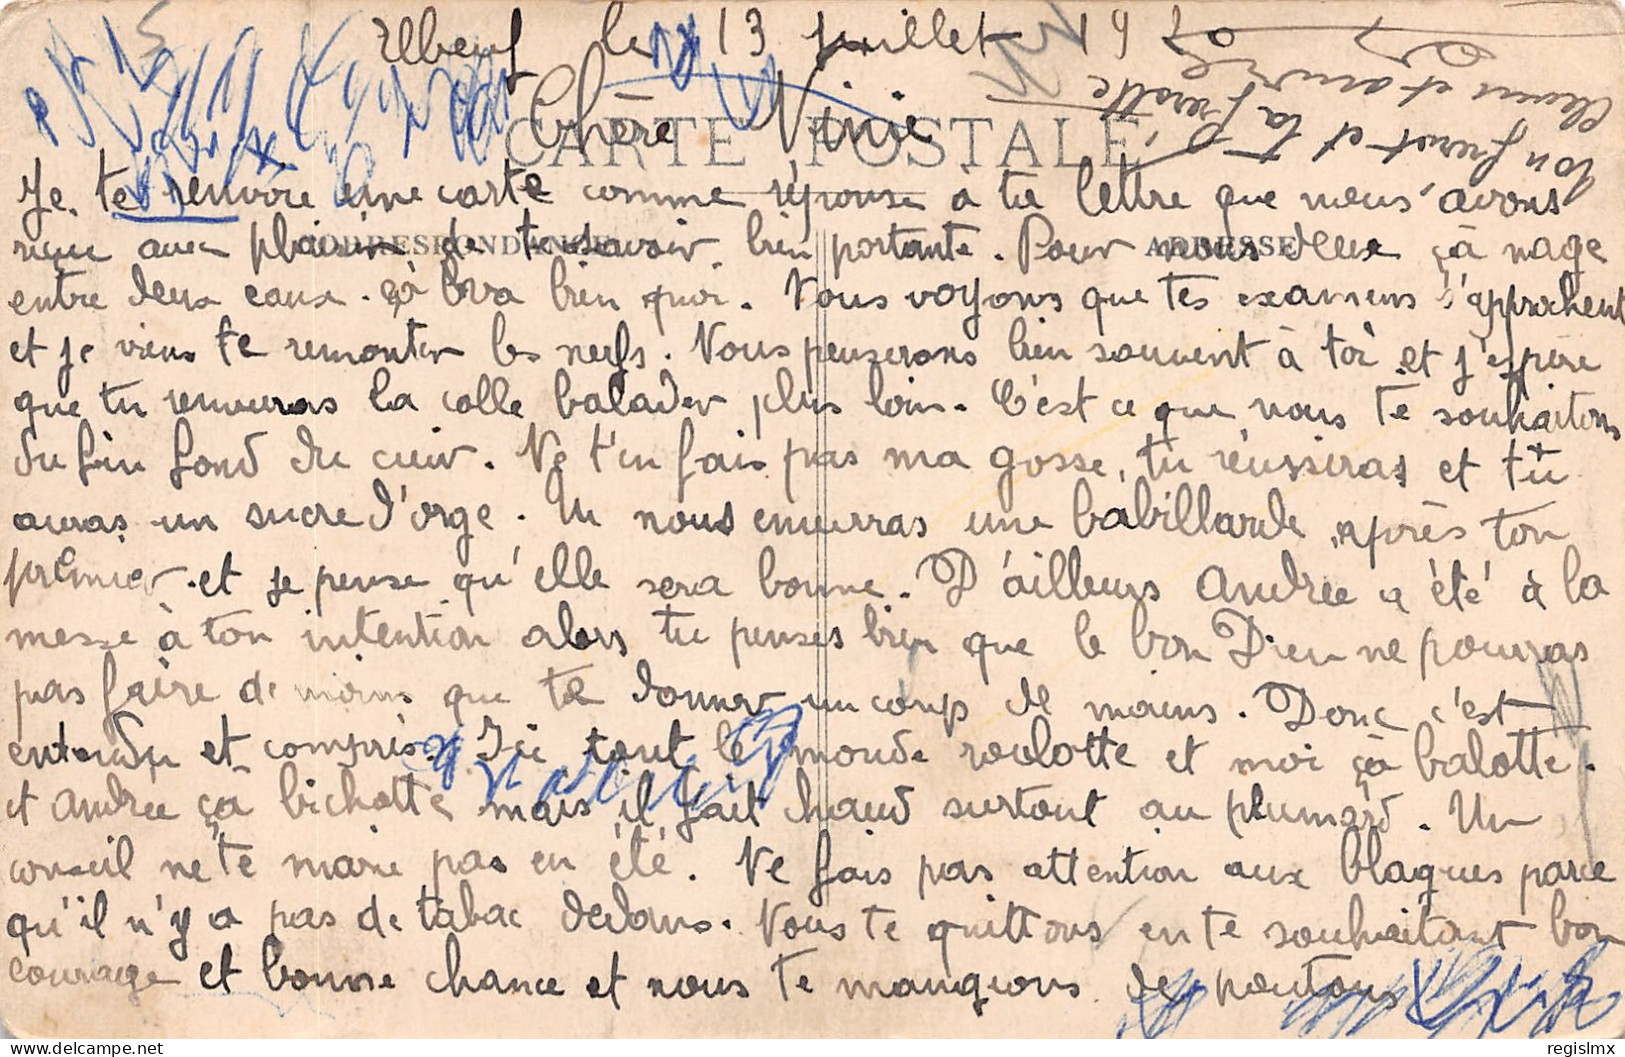 Elbeuf le 13 juillet 19
CARTE POSTALE
Chère Ninie
CORRESPONDANCE
ADRESSE
Je te renvoie une carte comme réponse à ta lettre que nous avons
reçu avec plaisir de te savoir bien portante. Pour nous deux çà nage
entre deux eaux. çà bien quoi. Nous voyons que tes examens s'approchent
et je viens te remonter les nerfs. Nous penserons bien souvent à toi et j'espère
que tu renverras la colle balader plus loin. C'est ce que nous te souhaitons
du fin fond du cuir. Ne t'en fais pas ma gosse, tu réussiras et tu
auras un sucre d'orge. Tu nous enverras une babillarde après ton
premier et je pense qu'elle sera bonne. D'ailleurs Andrée a été à la
messe à ton intention alors tu penses bien que le bon Dieu ne pourras
pas faire de moins que te donner un coup de mains. Donc c'est
entendu et compris. Ici tout le monde roulotte et moi çà balotte.
et Andrée çà bichotte mais il fait chaud surtout au plumard. Un
conseil ne te marie pas en été. Ne fais pas attention aux blagues parce
qu'il n'y a pas de tabac dedans. Nous te quittons en te souhaitant bon
courage et bonne chance et nous te mangeons de poutous
ton frerot et ta
et
regislmx